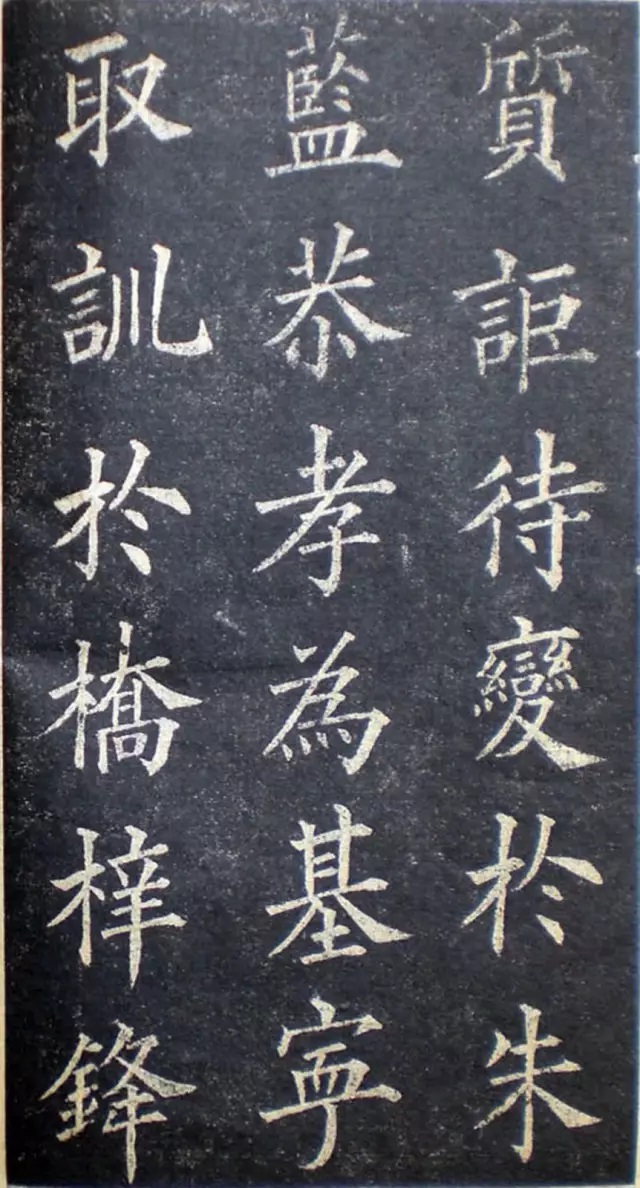 質詎待變於朱
藍恭孝為基寧
取訓於橋梓鋒